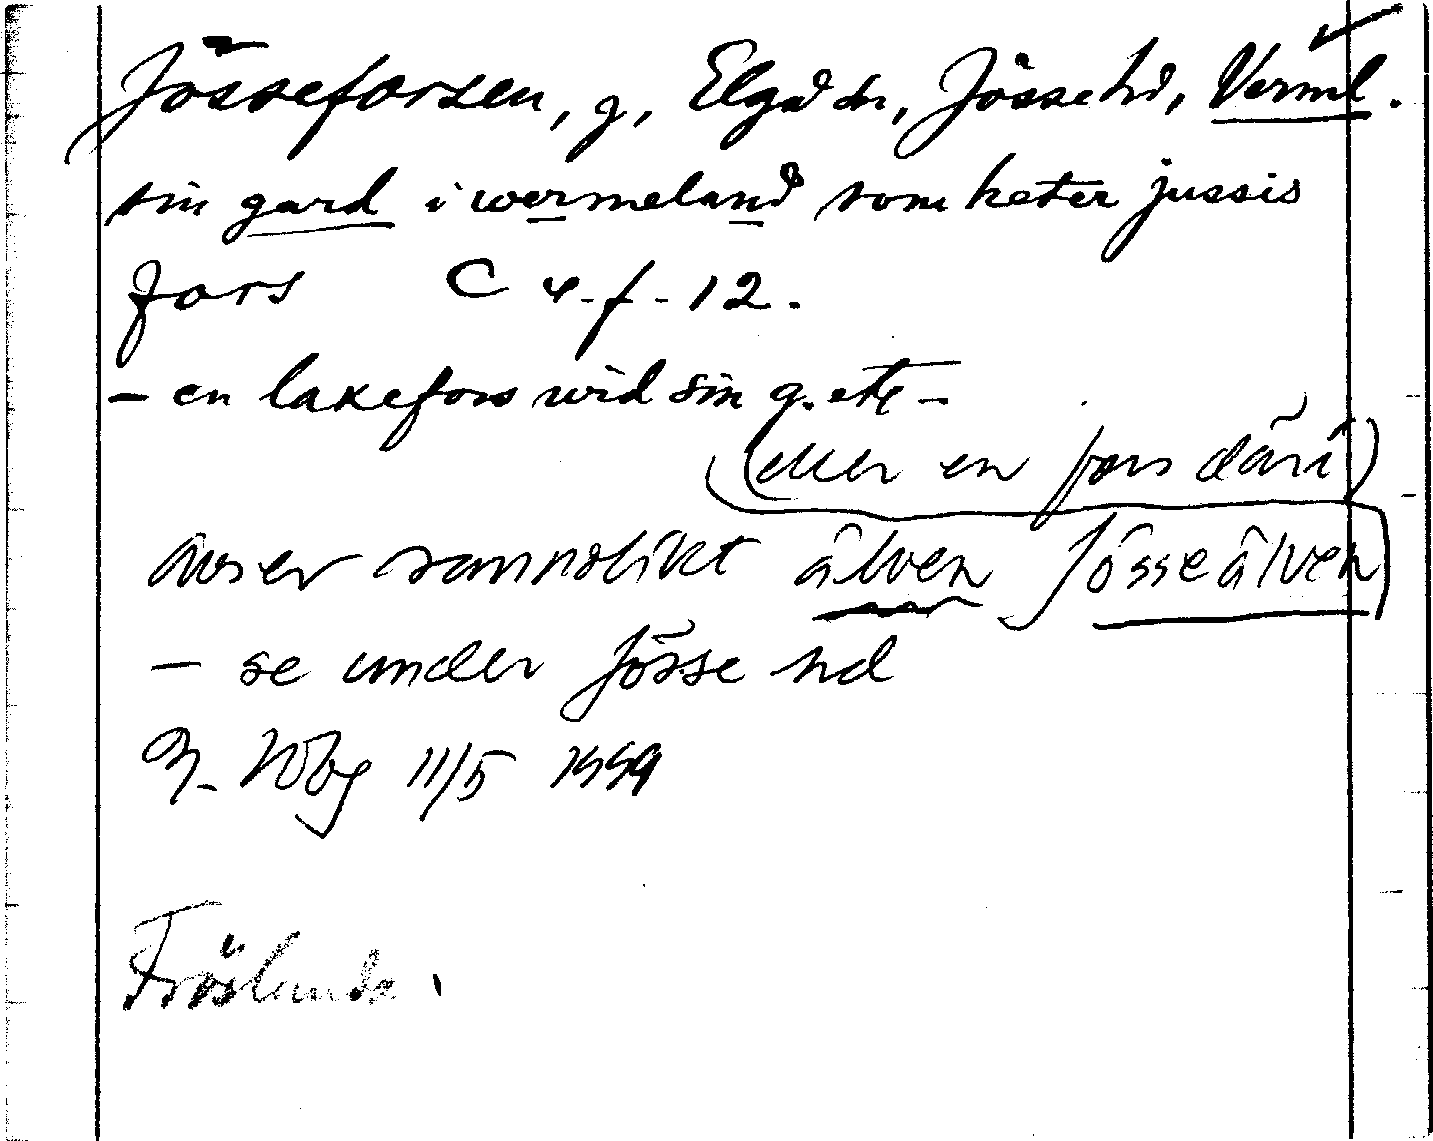 Jösseforsen, g, Elgå sn, Jösse hd, Verml.
sin gard i wermeland som heter jussis
fors C 4-f-12.
- en laxefors wid sin g. etc -
(eller en fors däri)
avser sannolikt älven Jösseälven
- se under Jösse hd
11/5 1999
Fröslunda.